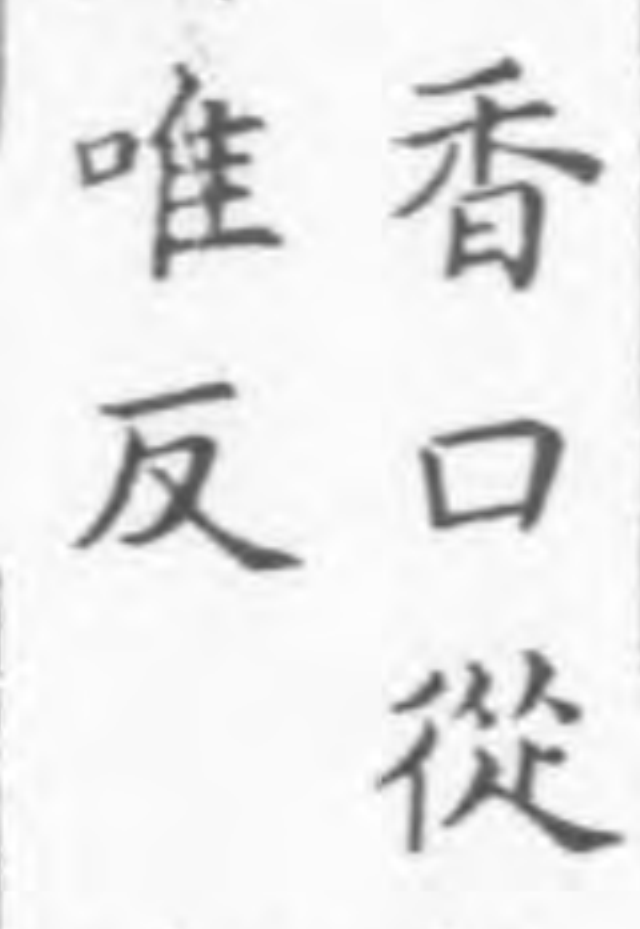 香口從
唯反